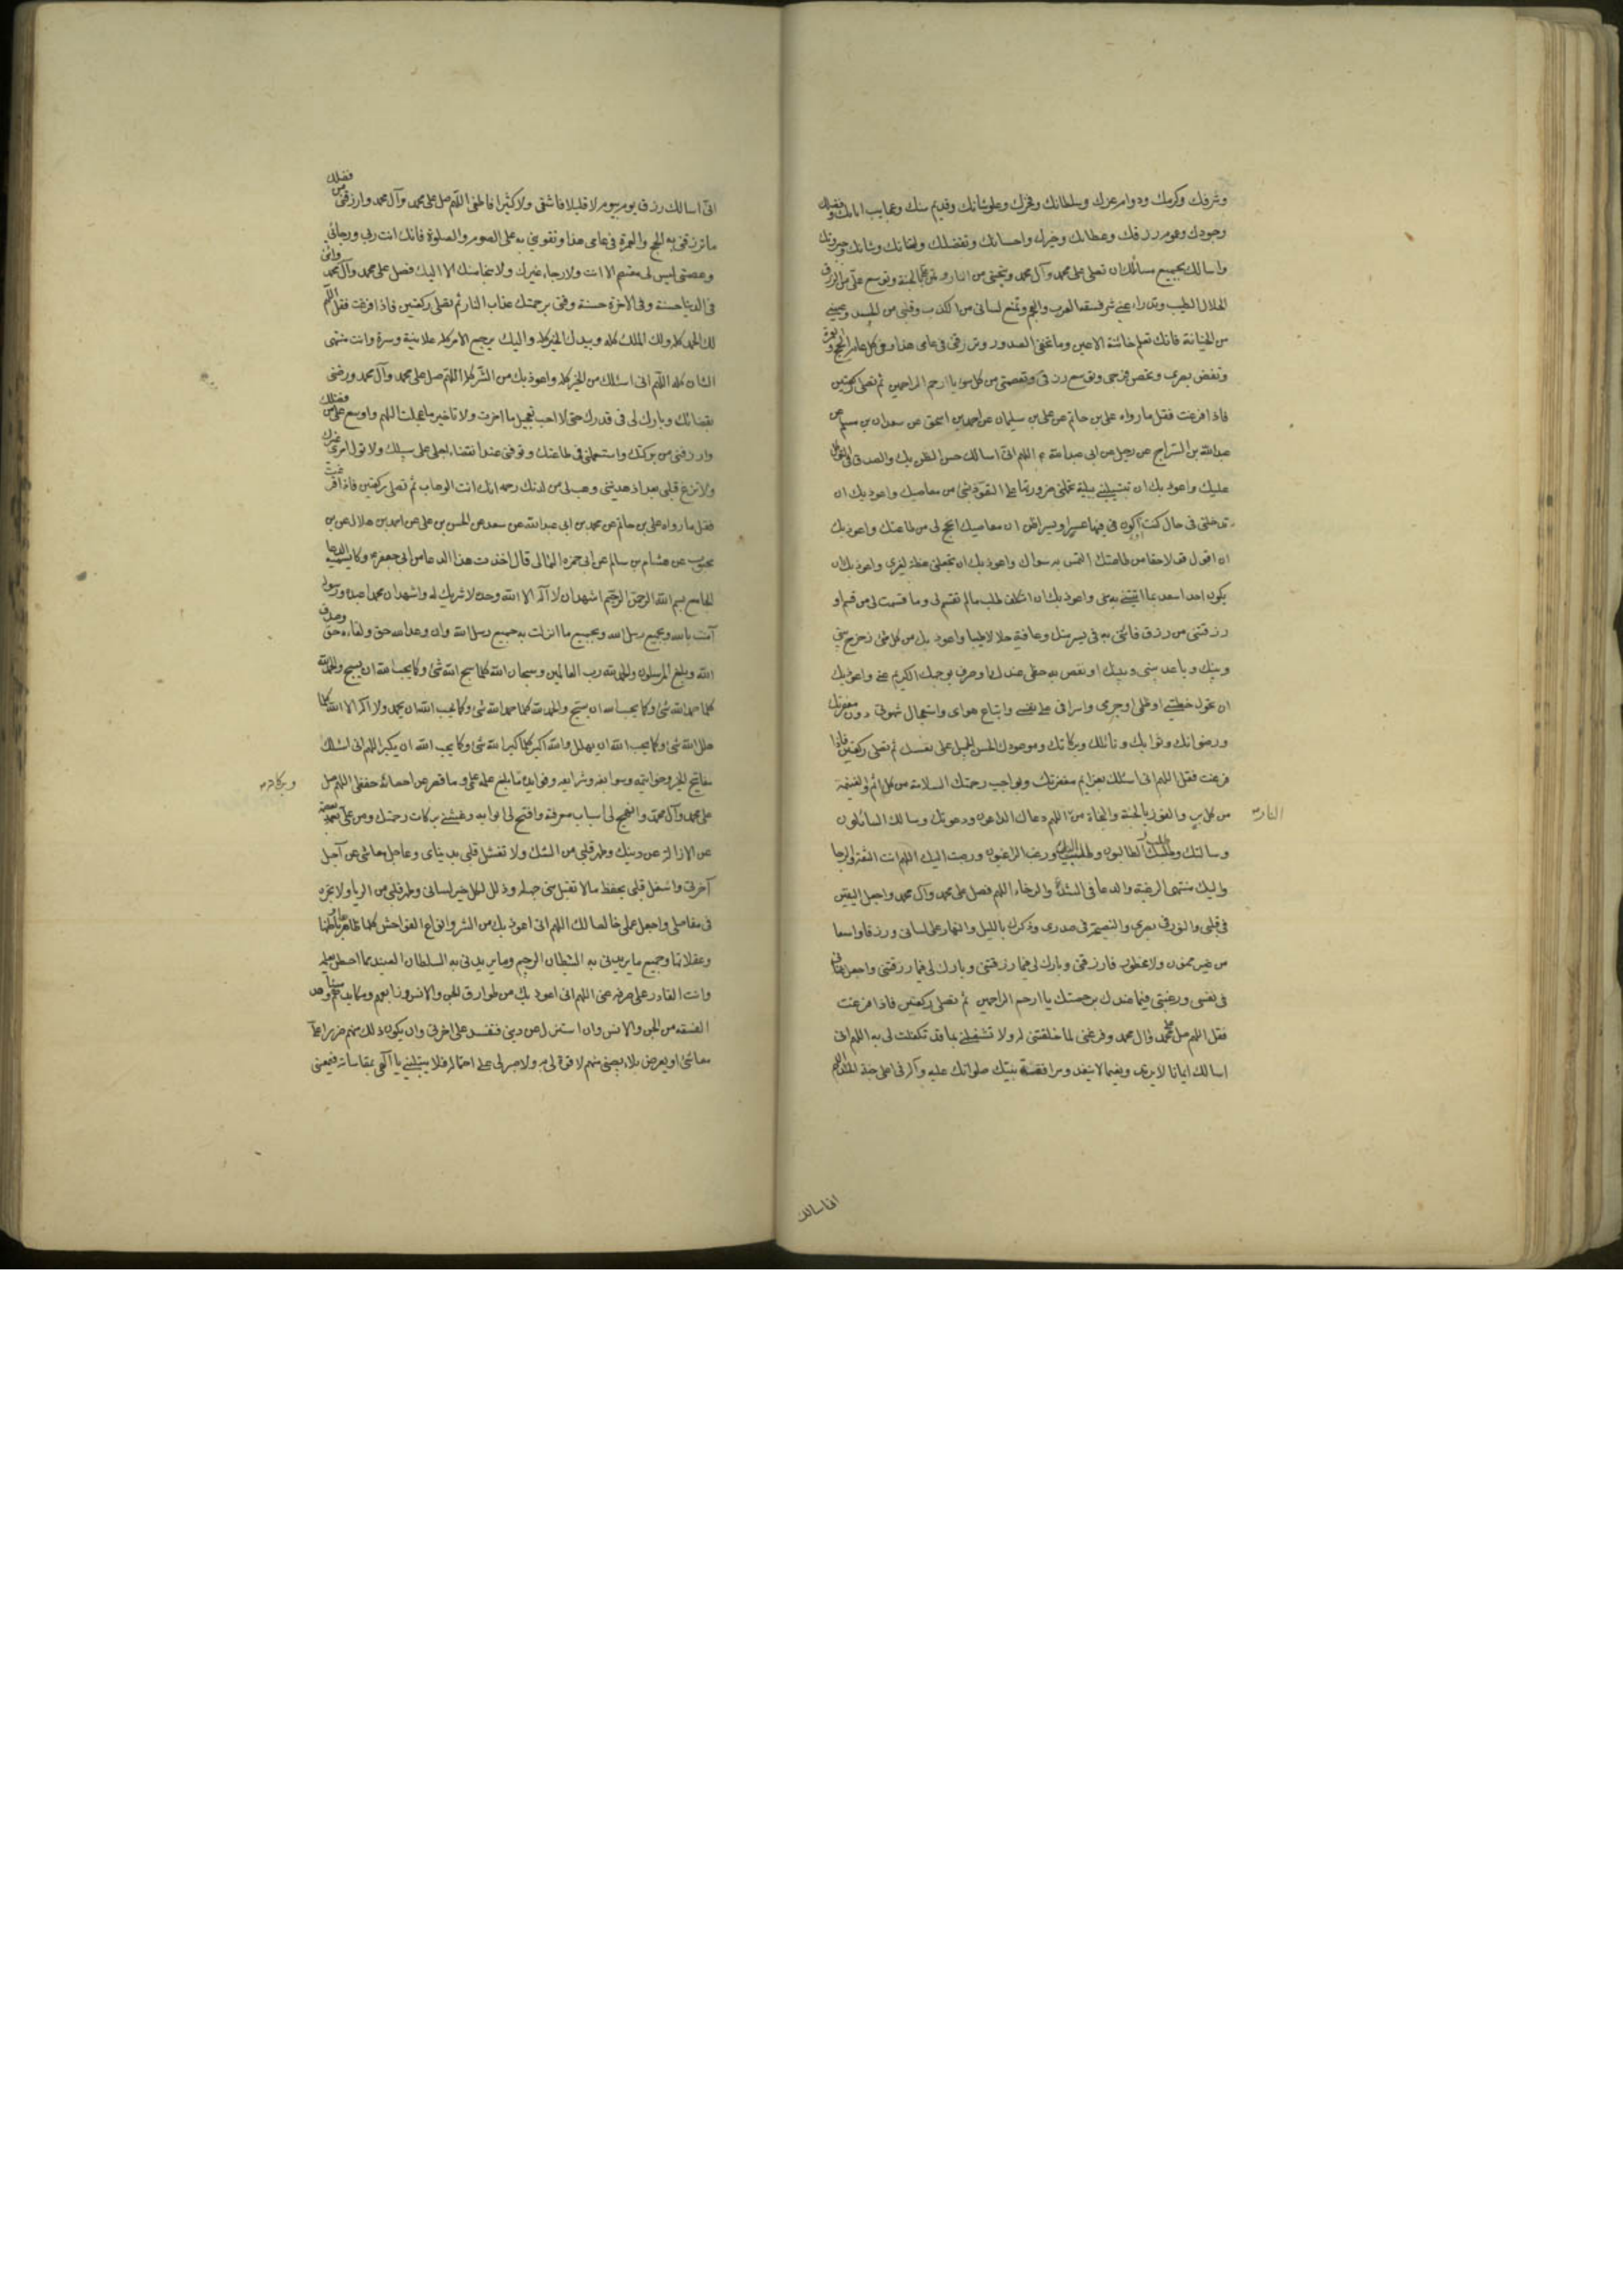 وشرفك وكرمك ودوام عزك وسلطانك وفخرك وعلو شانك وقديم منك وعجايب اياتك وفضلك
وجودك وعموم رزقك وعطائك وخيرك واحسانك وتفضلك وامتنانك وشانك وجبروتك
واسالك بجميع مسائلك ان تصلى على محمد وآل محمد وتنجينى من النار وتمن على بالجنة وتوسع على من الرزق
الحلال الطيب وتدراء عنى شر فسقة العرب والعجم وتمنع لسانى من الكذب وقلبى من الحسد وعينى
من الخيانة فانك تعلم خائنة الاعين وما تخفى الصدور وترزقنى فى عامى هذا وفى كل عام الحج والعمرة
وتغض بصرى وتحصن فرجى وتوسع رزقى وتعصمنى من كل سوء يا ارحم الراحمين ثم تصلى ركعتين
فاذا فرغت فقل ما رواه على بن حاتم عن على بن سليمان عن احمد بن اسحق عن سعدان بن مسلم عن
عبدالله بن السراج عن رجل عن ابى عبدالله ع اللهم انى اسالك حسن الظن بك والصدق فى التوكل
عليك واعوذ بك ان تبتلينى ببلية تحملنى ضرورتها على التعوذ بشئ من معاصيك واعوذ بك ان
تدخلنى فى حال كنت اكون فيها فى عسر او يسر اظن ان معاصيك انجح لى من طاعتك واعوذ بك
ان اقول قولا حقا من طاعتك التمس به سواك واعوذ بك ان تجعلنى عظة لغيرى واعوذ بك ان
يكون احد اسعد بما اتيتنى به منى واعوذ بك ان اتكلف طلب ما لم تقسم لى وما قسمت لى من قسم او
رزقتنى من رزق فاتنى به فى يسر منك وعافية حلالا طيبا واعوذ بك من كل شئ زحزح بينى
وبينك وباعد بينى وبينك او نقص به حظى عندك او صرف بوجهك الكريم عنى واعوذ بك
ان تحول خطيئتى او ظلمى او جرمى واسرافى على نفسى واتباع هواى واستعجال شهوتى دون مغفرتك
ورضوانك وثوابك ونائلك وبركاتك وموعودك الحسن الجميل على نفسك ثم تصلى ركعتين فاذا
فرغت فقل اللهم انى اسئلك بعزايم مغفرتك وبواجب رحمتك السلامة من كل اثم والغنيمة
من كل بر والفوز بالجنة والنجاة من اللهم دعاك الداعون ودعوتك وسالك السائلون
النار
وسالتك وطلبك الطالبون وطلبت اليك ورغب الراغبون ورغبت اليك اللهم انت الثقة والرجا
واليك منتهى الرغبة والدعا فى الشدة والرخاء اللهم فصل على محمد وآل محمد واجعل اليقين
فى قلبى والنور فى بصرى والنصيحة فى صدرى وذكرك بالليل والنهار على لسانى ورزقا واسعا
من غير ممنون ولا محظور فارزقنى وبارك لى فيما رزقتنى وبارك لى فيما رزقتنى واجعل غناى
فى نفسى ورغبتى فيما عندك برحمتك يا ارحم الراحمين ثم تصلى ركعتين فاذا فرغت
فقل اللهم صل على محمد وآل محمد وفرغنى لما خلقتنى له ولا تشغلنى بما قد تكفلت لى به اللهم انى
اسالك ايمانا لا يرتد ونعيما لا ينفد ومرافقة نبيك صلواتك عليه وآله فى اعلى جنة الخلد اللهم
انى اسالك
انى اسالك رزق يوم بيوم لا قليلا فاشقى ولا كثيرا فاطغى اللهم صل على محمد وآل محمد وارزقنى من فضلك
ما ترزقنى به الحج والعمرة فى عامى هذا وتقوينى به على الصوم والصلوة فانك انت ربى ورجائى
وعصمتى ليس لى معتصم الا انت ولا رجاء غيرك ولا منجا منك الا اليك فصل على محمد وآل محمد واتنى
فى الدنيا حسنة وفى الاخرة حسنة وقنى برحمتك عذاب النار ثم تصلى ركعتين فاذا فرغت فقل اللهم
لك الحمد كله ولك الملك كله وبيدك الخير كله واليك يرجع الامر كله علانيته وسره وانت منتهى
الشان كله اللهم انى اسئلك من الخير كله واعوذ بك من الشر كله اللهم صل على محمد وآل محمد ورضنى
بقضائك وبارك لى فى قدرك حتى لا احب تعجيل ما اخرت ولا تاخير ما عجلت اللهم واوسع على من فضلك
وارزقنى من بركتك واستعملنى فى طاعتك وتوفنى عند انقضاء اجلى على سبيلك ولا تول امرى غيرك
ولا تزغ قلبى بعد اذ هديتنى وهب لى من لدنك رحمة انك انت الوهاب ثم تصلى ركعتين فاذا فرغت
فقل ما رواه على بن حاتم عن محمد بن ابى عبدالله عن سعد عن الحسن بن على عن احمد بن هلال عن بن
محبوب عن هشام بن سالم عن ابى حمزه الثمالى قال اخذت هذا الدعا من ابى جعفر ع وكان يسميه الدعا
الجامع بسم الله الرحمن الرحيم اشهد ان لا اله الا الله وحده لا شريك له واشهد ان محمدا عبده ورسوله
آمنت بالله وبجميع رسل الله وبجميع ما انزلت به جميع رسل الله وان وعد الله حق ولقاءه حق وصدق
الله وبلغ المرسلون والحمد لله رب العالمين وسبحان الله كلما سبح الله شئ وكما يحب الله ان يسبح والحمد لله
كلما حمد الله شئ وكما يحب الله ان يسبح والحمد لله كلما حمد الله شئ وكما يحب الله ان يحمد ولا اله الا الله كلما
هلل الله شئ وكما يحب الله ان يهلل والله اكبر كلما كبر الله شئ وكما يحب الله ان يكبر اللهم انى اسئلك
مفاتيح الخير وخواتيمه وسوابغه وشرايعه وفوايده ما بلغ علمه علمى وما قصر عن احصائه حفظى اللهم صل
وبركاته
على محمد وآل محمد وانهج لى اسباب معرفته وافتح لى ابوابه وغشنى بركات رحمتك ومن على بعصمة
عن الازالة عن دينك وطهر قلبى من الشك ولا تشغل قلبى بدنياى وعاجل معاشى عن آجل
آخرتى واشغل قلبى بحفظ ما لا تقبل منى جهله وذلل لكل خير لسانى وطهر قلبى من الريا ولا تجره
فى مفاصلى واجعل عملى خالصا لك اللهم انى اعوذ بك من الشر وانواع الفواحش كلها ظاهرها وباطنها
وغفلاتها وجميع ما يريدنى به الشيطان الرجيم وما يريدنى به السلطان العنيد مما احطت بعلمه
وانت القادر على صرفه عنى اللهم انى اعوذ بك من طوارق الجن والانس وزوابعهم ومكايدهم
الفسقة من الجن والانس وان استزل عن دينى فتفسد على اخرتى وان يكون ذلك منهم ضررا على
معاشى او يعرض بلاء يصيبنى منهم لا قوة لى به ولا صبر لى على احتماله فلا تبتلينى يا الهى بمقاساته فيمنعنى